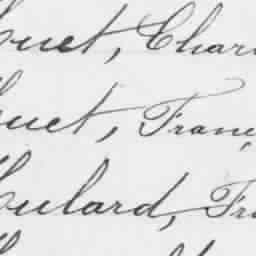 uet, Char
uet, Franç
ulard, Fr